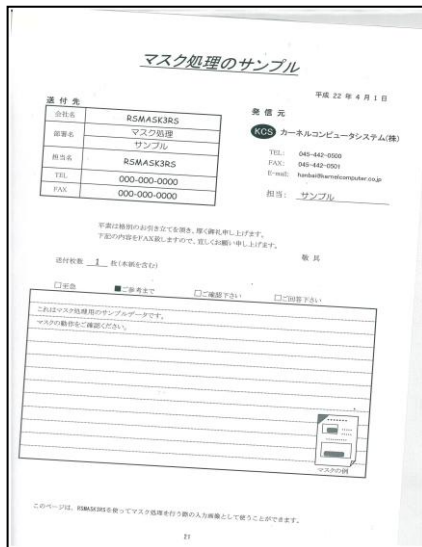 マスク処理のサンプル
平成 22 年 4 月 1 日
送付先
会社名 RSMASK3RS
部署名 マスク処理
サンプル
担当名 RSMASK3RS
TEL 000-000-0000
FAX 000-000-0000
発信元
KCS カーネルコンピュータシステム(株)
TEL: 045-442-0500
FAX: 045-442-0501
E-mail: hanbai@kernelcomputer.co.jp
担当: サンプル
平素は格別のお引き立てを頂き、厚く御礼申し上げます。
下記の内容をFAX致しますので、宜しくお願い申し上げます。
敬具
送付枚数 1 枚(本紙を含む)
□至急 ■ご参考まで □ご確認下さい □ご回答下さい
これはマスク処理用のサンプルデータです。
マスクの動作をご確認ください。
マスクの例
このページは、RSMASK3RSを使ってマスク処理を行う際の入力画像として使うことができます。
21